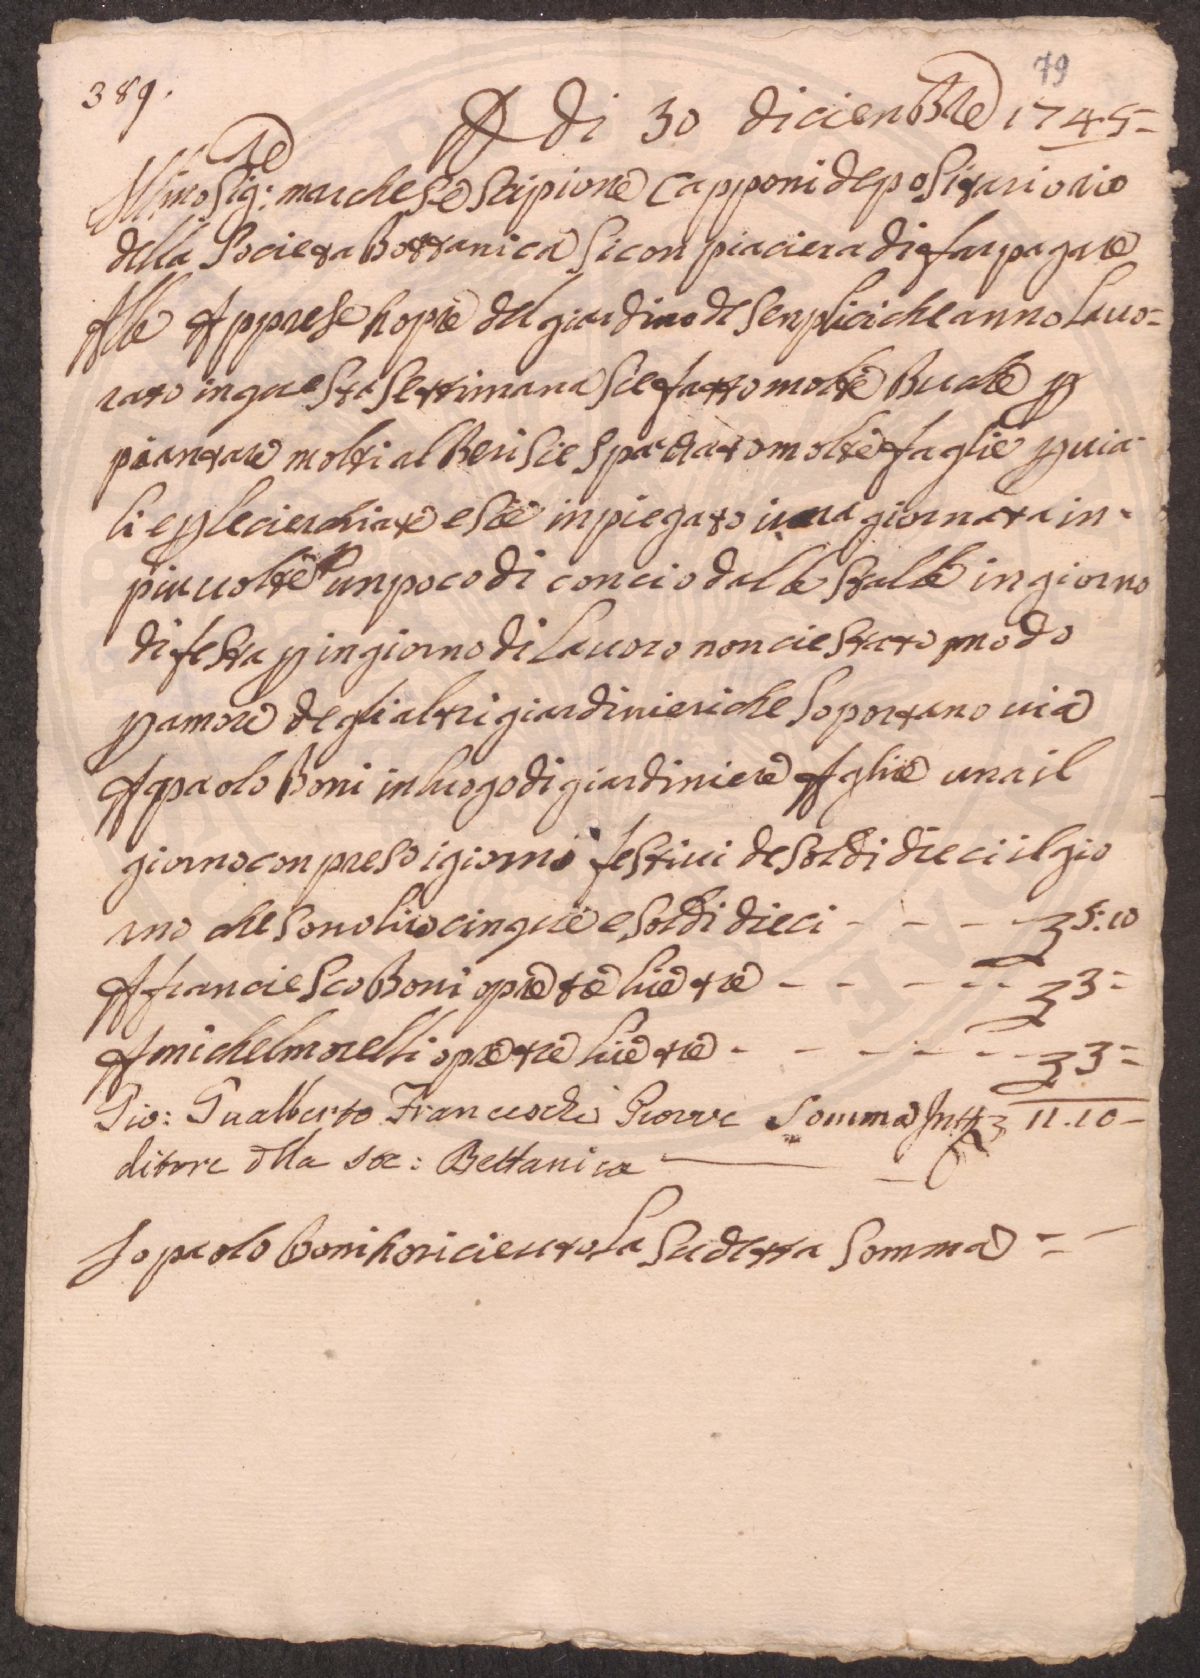 79
389.
A di 30 dicienbre 1745-
Ill.mo Sig:re marchese Scipione Capponi depositario
della Societa Bottanica Si conpiaciera di far pagare
Alle Apprese hopre del giardino de Senplici che anno Lauo=
rato in questa Settimana Sie fatto molte Buche p
piantare molti alberi Sie Spachato molte faglie p uia
li e p le cierchiate e Sie inpiegato una giornata in-
piu uolte p un poco di concio dalle Stalle in giorno
di festa p in giorno di Lauoro non cie stato modo
p amore degli altri giardinieri che Soportano uia
A paolo Boni in luogo di giardiniere A glire una il
giorno conpreso i giorni festiui de Soldi dieci il gio
rno che Sono lire cinque e Soldi dieci - - - - 5:10
A franciesco Boni opre tre lire tre - - - - - 3-
A michel morelli opre tre lire tre - - - - - - 3-
Gio: Gualberto Franceschi Provve Somma 11.10-
ditore della soc: Bottanica
Io paolo Boni ho riceuto La Sudetta Somma - -